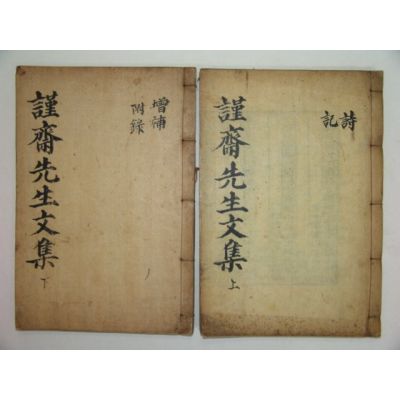 詩
記
謹齋先生文集 上
增補
附錄
謹齋先生文集 下